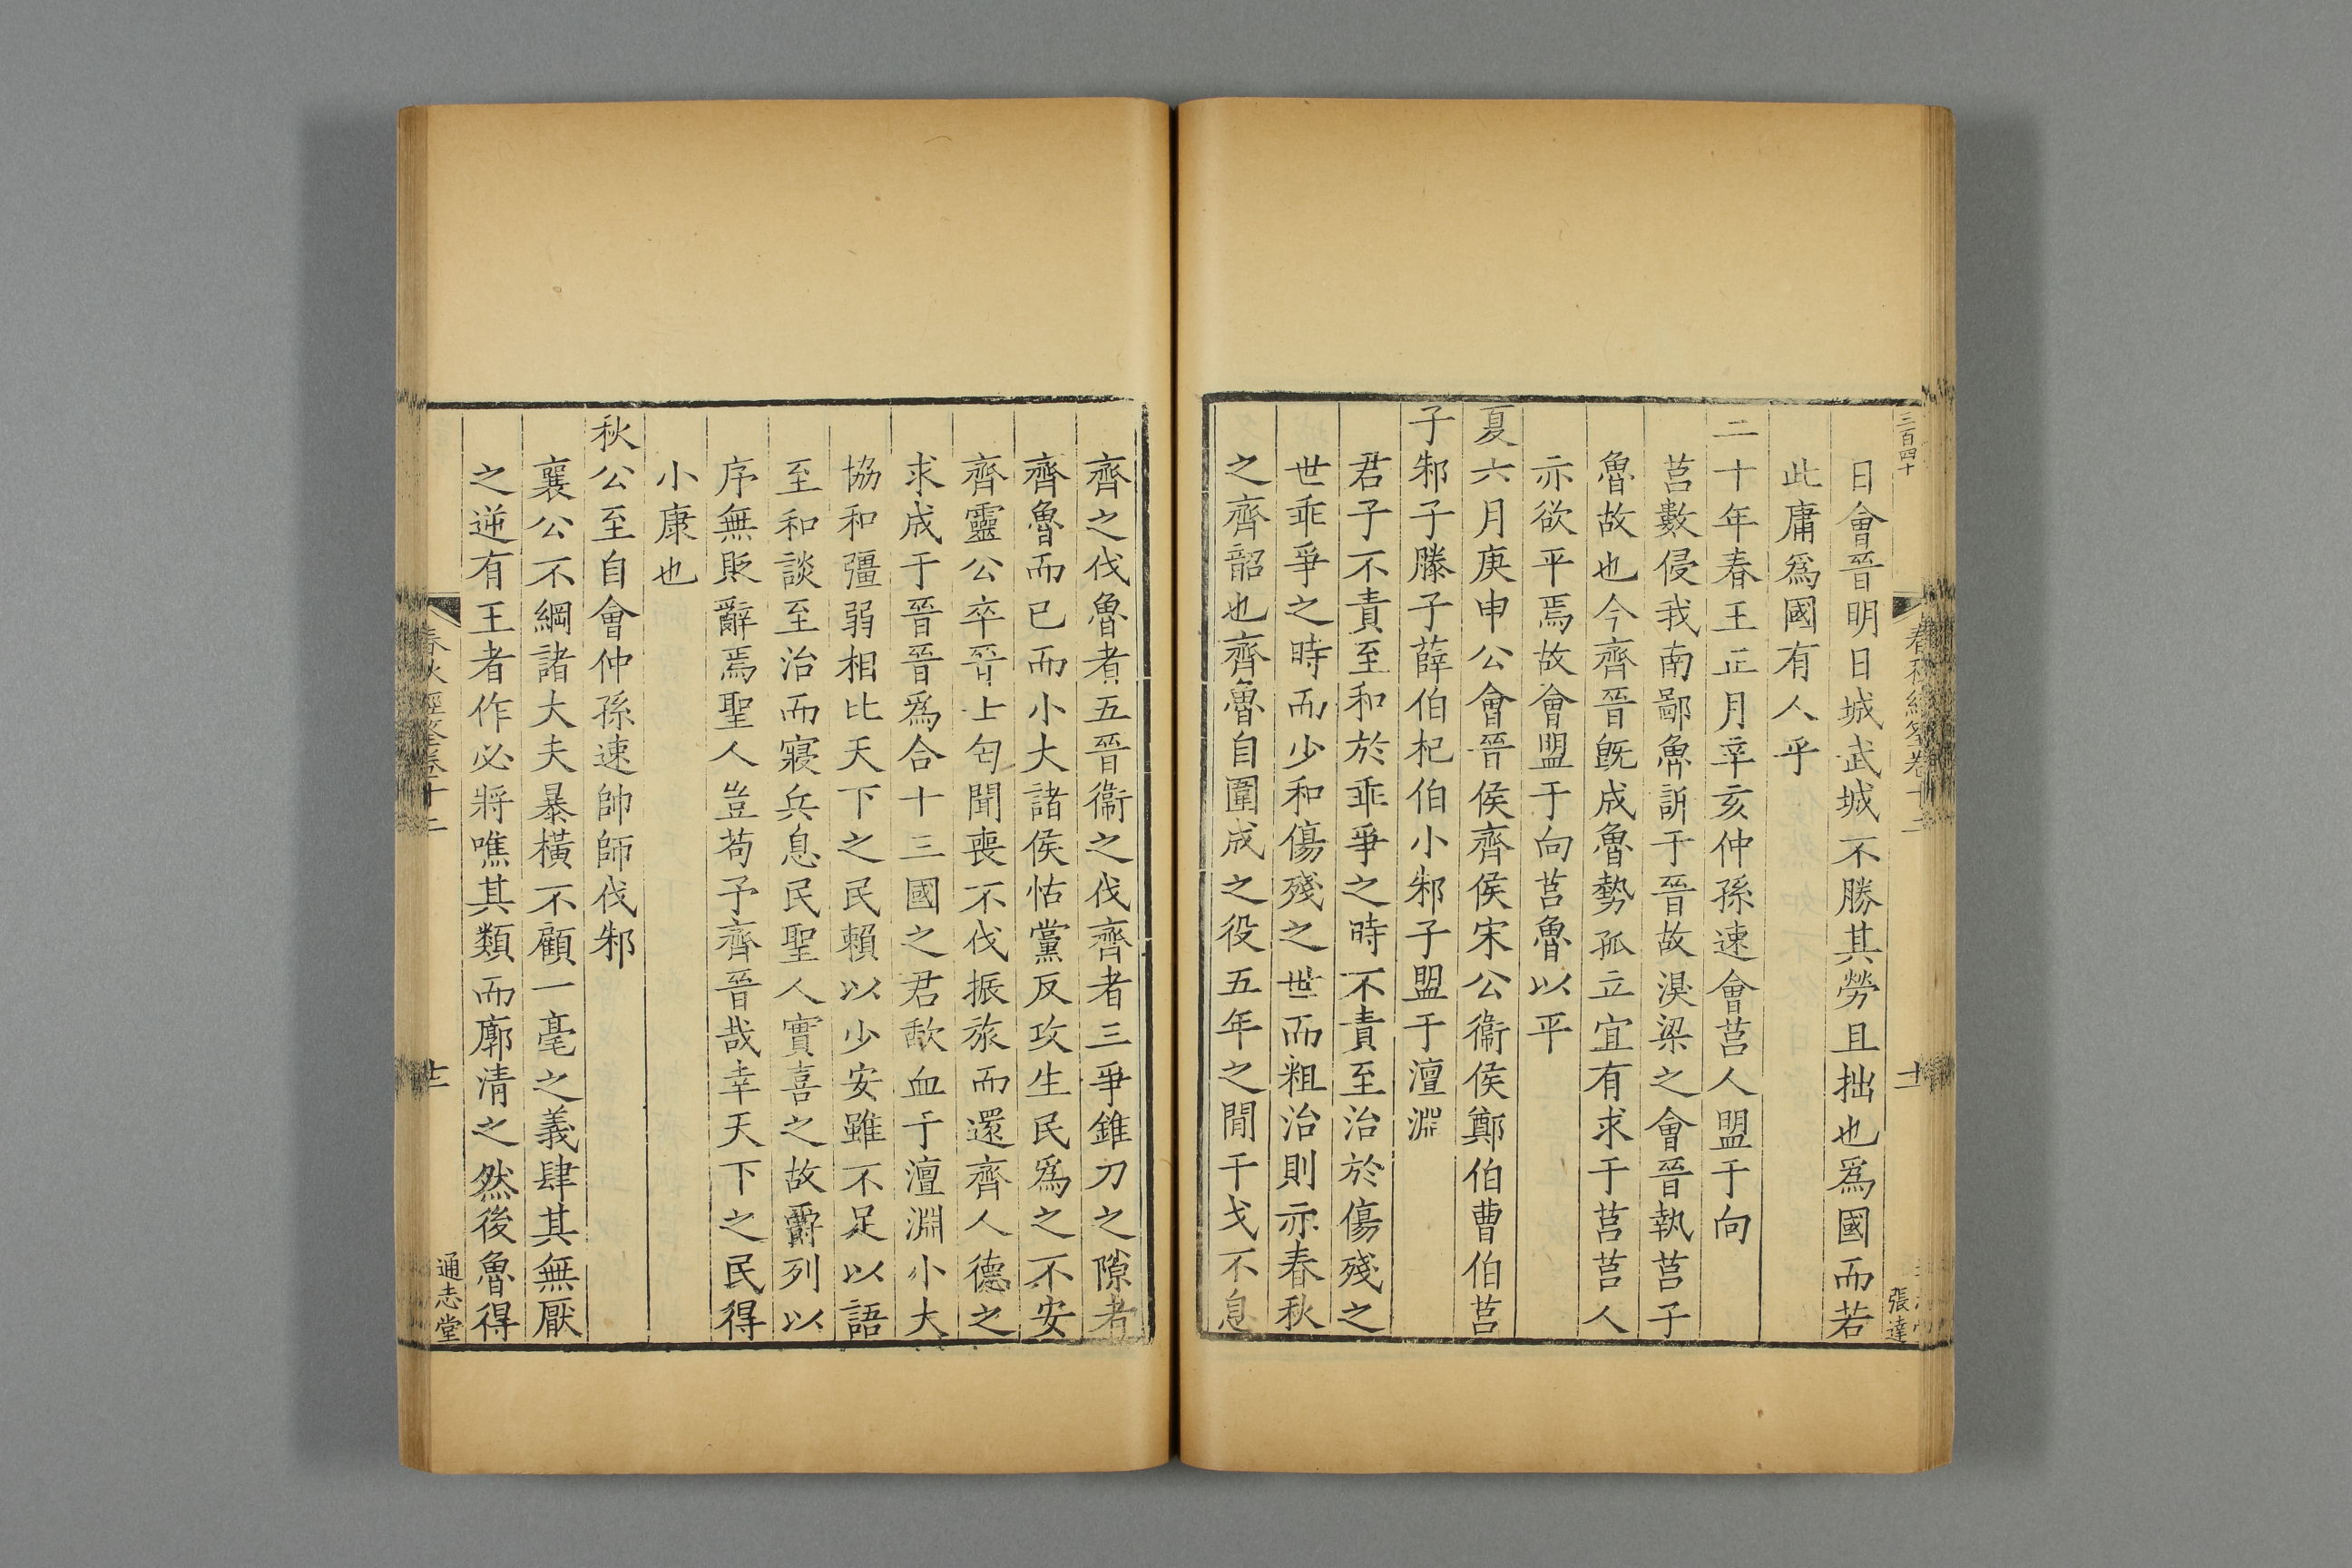 三百四十
春秋經筌卷十二
十一
張達
日會晉明日城武城不勝其勞且拙也爲國而若
此庸爲國有人乎
二十年春王正月辛亥仲孫速會莒人盟于向
莒數侵我南鄙魯訴于晉故湨梁之會晉執莒子
魯故也今齊晉旣成魯勢孤立宜有求于莒莒人
亦欲平焉故會盟于向莒魯以平
夏六月庚申公會晉侯齊侯宋公衞侯鄭伯曹伯莒
子邾子滕子薛伯杞伯小邾子盟于澶淵
君子不責至和於乖爭之時不責至治於傷殘之
世乖爭之時而少和傷殘之世而粗治則亦春秋
之齊韶也齊魯自圍成之役五年之閒干戈不息
齊之伐魯者五晉衞之伐齊者三爭錐刀之隙者
齊魯而已而小大諸侯怙黨反攻生民爲之不安
齊靈公卒晉士匄聞喪不伐振旅而還齊人德之
求成于晉晉爲合十三國之君歃血于澶淵小大
協和彊弱相比天下之民賴以少安雖不足以語
至和談至治而寢兵息民聖人實喜之故爵列以
序無貶辭焉聖人豈苟予齊晉哉幸天下之民得
小康也
秋公至自會仲孫速帥師伐邾
襄公不綱諸大夫暴橫不顧一毫之義肆其無厭
之逆有王者作必將噍其類而廓清之然後魯得
春秋經筌卷十二
十二
通志堂